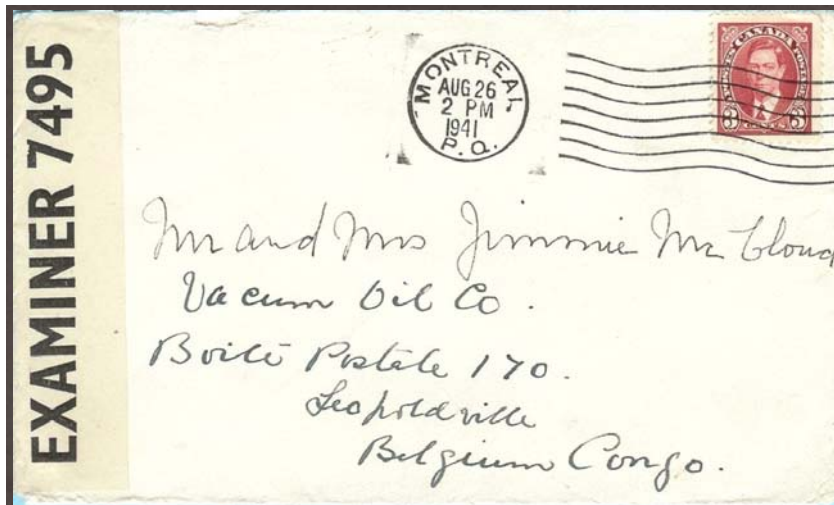 EXAMINER 7495
MONTREAL
AUG 26
2 PM
1941
P. Q.
CANADA
POSTES POSTAGE
3 CENTS 3
Mr and Mrs Jimmie Mc Cloud
Vacum Oil Co.
Boite Postale 170.
Leopoldville
Belgium Congo.